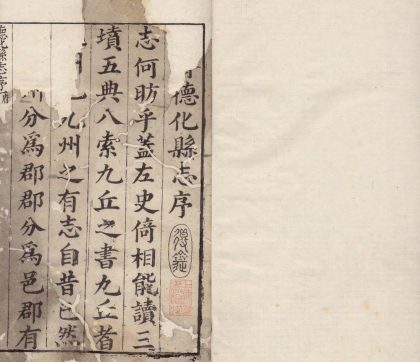 德化縣志序
志何昉乎蓋左史倚相能讀三
墳五典八索九丘之書九丘者
九州之有志自昔已然
分為郡郡分為邑郡有
德化縣志序